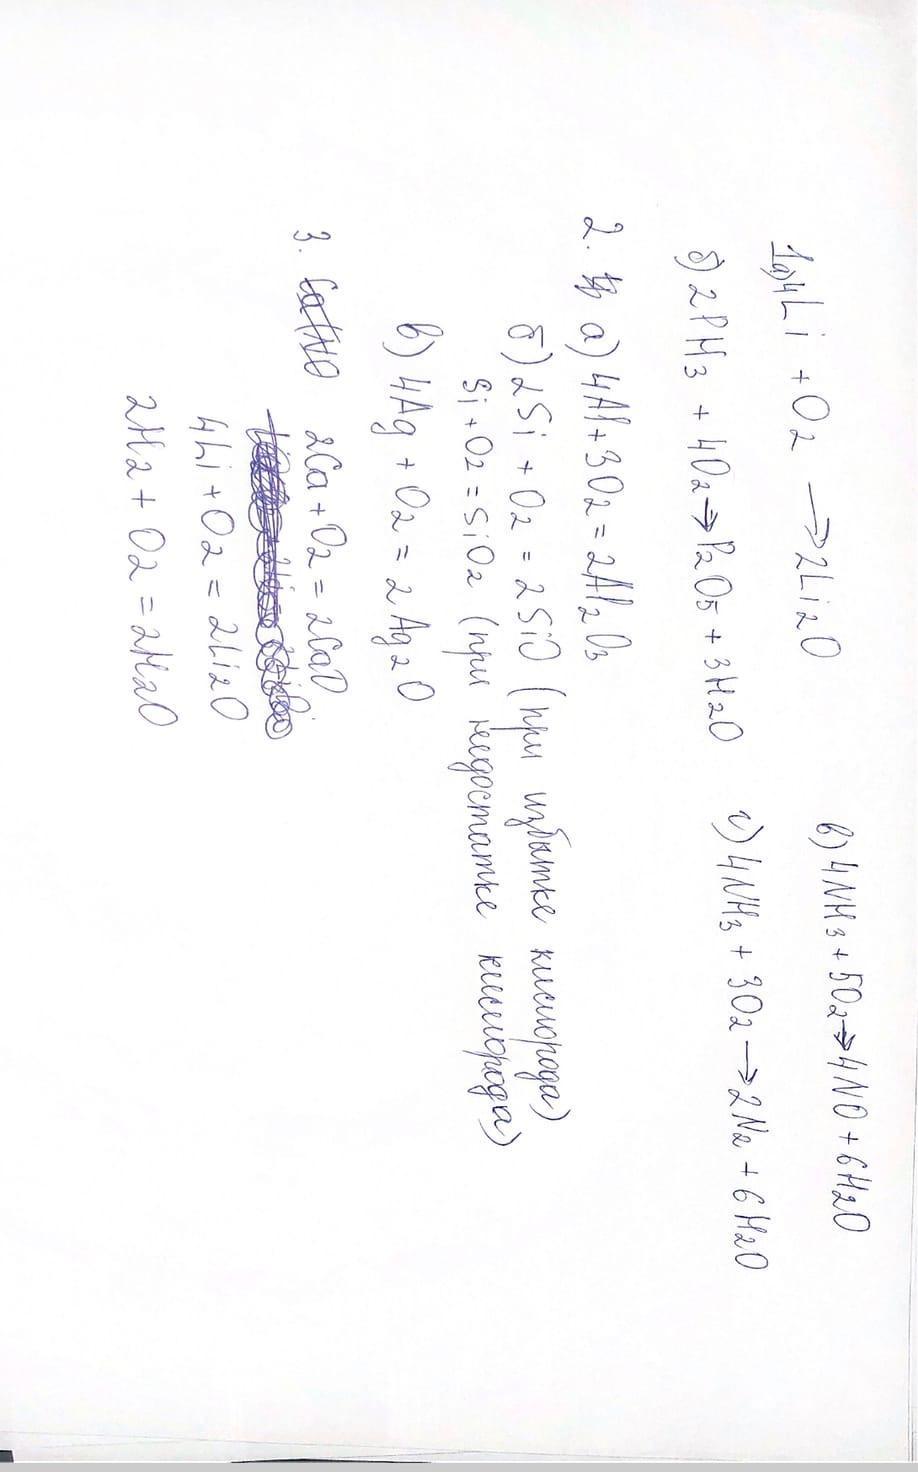 1a) 4Li + O2 → 2Li2O
б) 2PH3 + 4O2 → P2O5 + 3H2O
в) 4NH3 + 5O2 → 4NO + 6H2O
г) 4NH3 + 3O2 → 2N2 + 6H2O
2. а) 4Al + 3O2 = 2Al2O3
б) 2Si + O2 = 2SiO (при избытке кислорода)
Si + O2 = SiO2 (при недостатке кислорода)
в) 4Ag + O2 = 2Ag2O
3. 2Ca + O2 = 2CaO
4Li + O2 = 2Li2O
2H2 + O2 = 2H2O